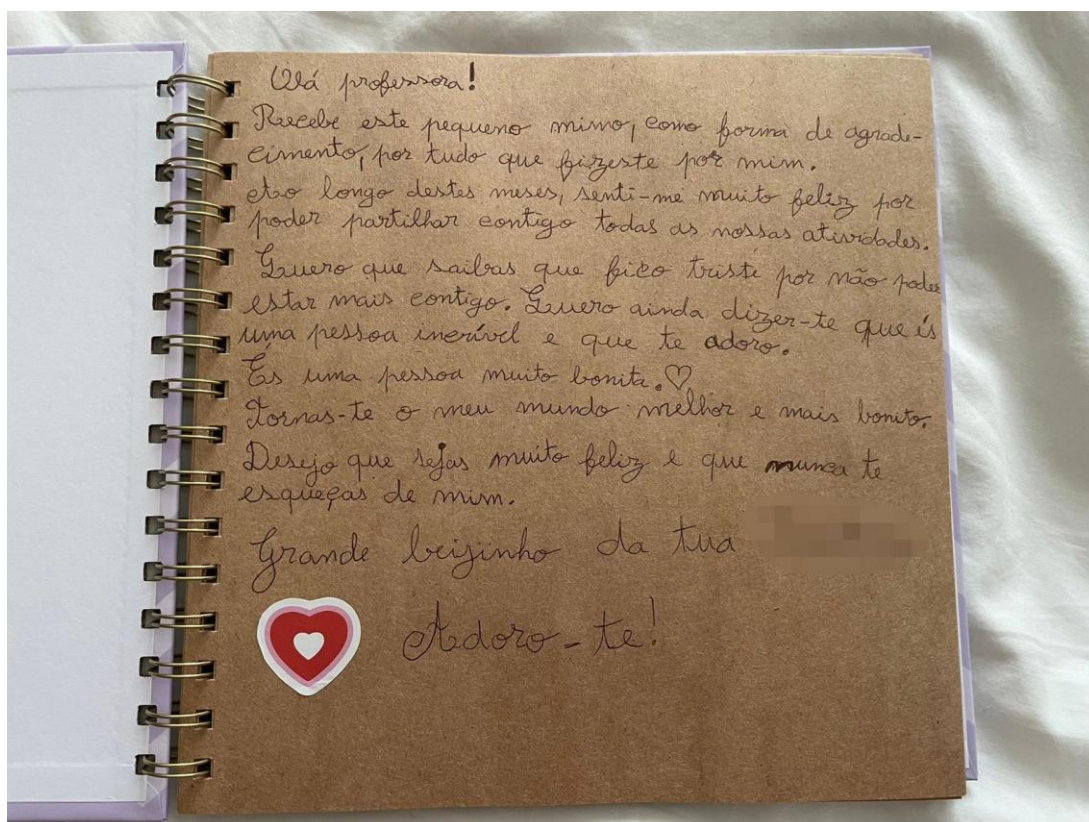 Olá professora!
Recebe este pequeno mimo, como forma de agrade-
cimento, por tudo que fizeste por mim.
Ao longo destes meses, senti-me muito feliz por
poder partilhar contigo todas as nossas atividades.
Quero que saibas que fico triste por não poder
estar mais contigo. Quero ainda dizer-te que és
uma pessoa incrível e que te adoro.
És uma pessoa muito bonita.♡
Tornas-te o meu mundo melhor e mais bonito.
Desejo que sejas muito feliz e que nunca te
esqueças de mim.
Grande beijinho da tua
Adoro-te!